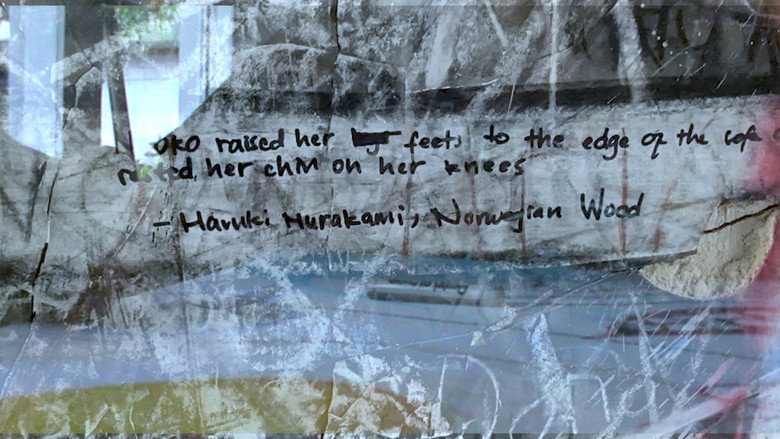 oko raised her feets to the edge of the sofa
rested her chin on her knees
– Haruki Murakami, Norwegian Wood